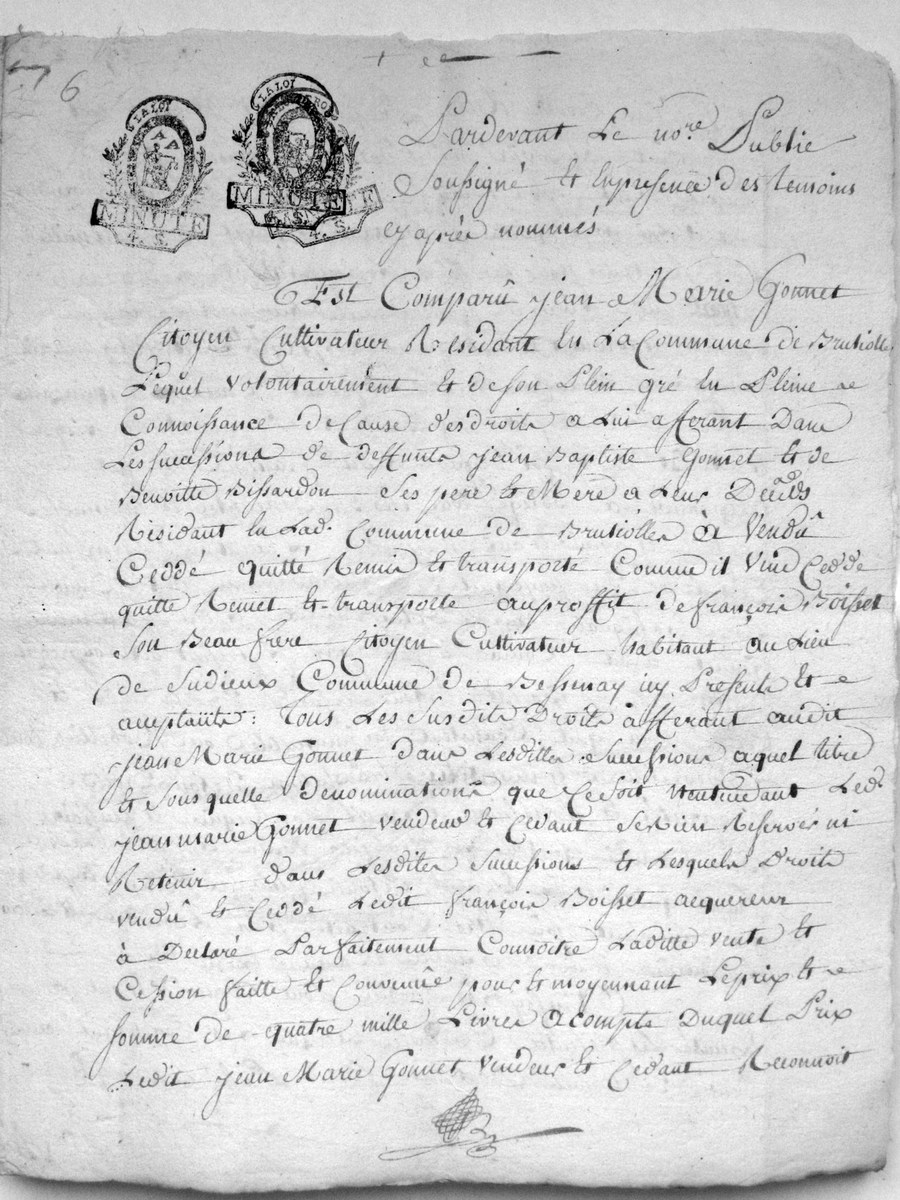 6
LA LOI
MINUTE
4. S.
LA LOI
MINUTE
4. S.
Pardevant Le no.re Public
Soussigné Et Enpresence des temoins
cy après nommés
Est Comparû jean Marie Gonnet
Citoyen Cultivateur Résidant En La Commune de Brusiolle
Lequel volontairement Et de son Plein gré En Pleine
Connoissance de Cause des droits a Lui afferant Dans
Les successions de deffunts jean Baptiste Gonnet Et de
Benoitte Bissardon Ses pere Et Mere a Leur Décéds
Résidant En Lad. Commune de Brusiolle à Vendû
Ceddé quitté Remis Et transporté Comme il Vend Cedde
quitte Remet Et transporte auproffit de françois Boisset
Son Beau frere Citoyen Cultivateur habitant au Lieu
de Sudieux Commune de Bessenay icy Present Et
acceptant: Tous Les Susdits Droits afferant audit
jean Marie Gonnet dans Lesdittes Successions aquel titre
Et Sous quelle denominations que Ce Soit Led.
jean marie Gonnet vendeur Et Cedant Se Rien Reserver ni
Retenir dans Lesdites Successions Et Lesquels Droits
vendû Et Ceddé Ledit françois Boisset acquereur
à Déclaré Parfaitement Connoitre Laditte vente Et
Cession faitte Et Convenüe pour Et moyennant Leprix Et
Somme de quatre mille Livres acompte Duquel Prix
Ledit jean Marie Gonnet Vendeur Et Cedant Reconnoit